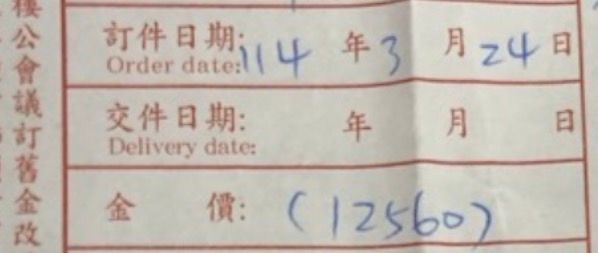 樓公會議訂舊金改
訂件日期: 114 年 3 月 24 日
Order date:
交件日期: 年 月 日
Delivery date:
金 價: (12560)